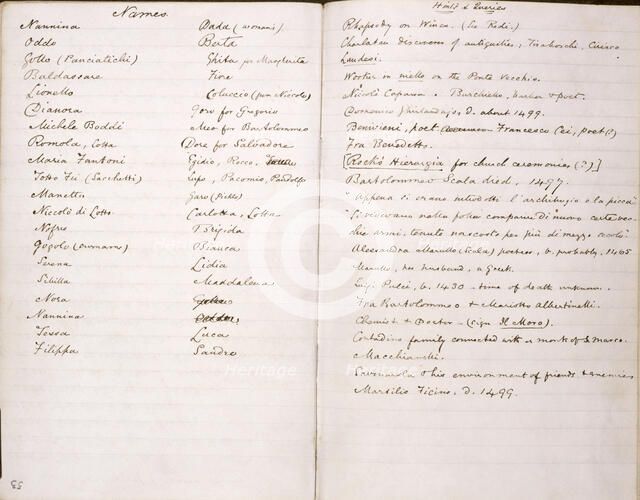 Names
Nannina Dada (woman's)
Oddo Berta
Gotto (Panciatichi) Ghita for Margherita
Baldassare Fiore
Lionello Coluccio (from Niccolo)
Dianora Goro for Gregorio
Michele Boddi Meo for Bartolommeo
Romola, Cotta Dore for Salvadore
Maria Fantoni Gidio, Rocco,
Totto Tei (Sacchetti) Lupo, Pacomio, Pandolfo
Manetto Garo
Niccolò di Lotto Carlotta, Lotta
Nofri Brigida
Gogolo (surname) Bianca
Serena Lidia
Sibilla Maddalena
Nora
Nannina
Tessa Luca
Filippa Sandro
55
Hints & Queries
Rhapsody on Wines. (See Redi.)
Charlatan discoverer of antiquities, Tiraboschi, Ciriaco
Laudesi.
Worker in niello on the Ponte Vecchio.
Nicolò Caparra. Burchiello, barber & poet.
Domenico Ghirlandajo, d. about 1499.
Benivieni, poet Francesco Cei, poet (?)
Fra Benedetto.
[Rock's Hierurgia for church ceremonies (?)]
Bartolommeo Scala died, 1497.
"Appena si erano introdotti l'archibugio e la picca"
"Si vedevano nelle poche compagnie di nuovo certe vec-
chie armi, tenute nascoste per più di mezzo secolo"
Alessandra Marullo (Scala) poetess, b. probably, 1465
Marullo, her husband, a Greek.
Luigi Pulci, b. 1430 - time of death unknown.
Fra Bartolommeo & Mariotto Albertinelli.
Chemist & Doctor - (sign Il Moro).
Contadino family connected with a monk of S. Marco.
Macchiavelli.
Savonarola & his environment of friends & enemies
Marsilio Ficino, d. 1499.
Heritage
Heritage